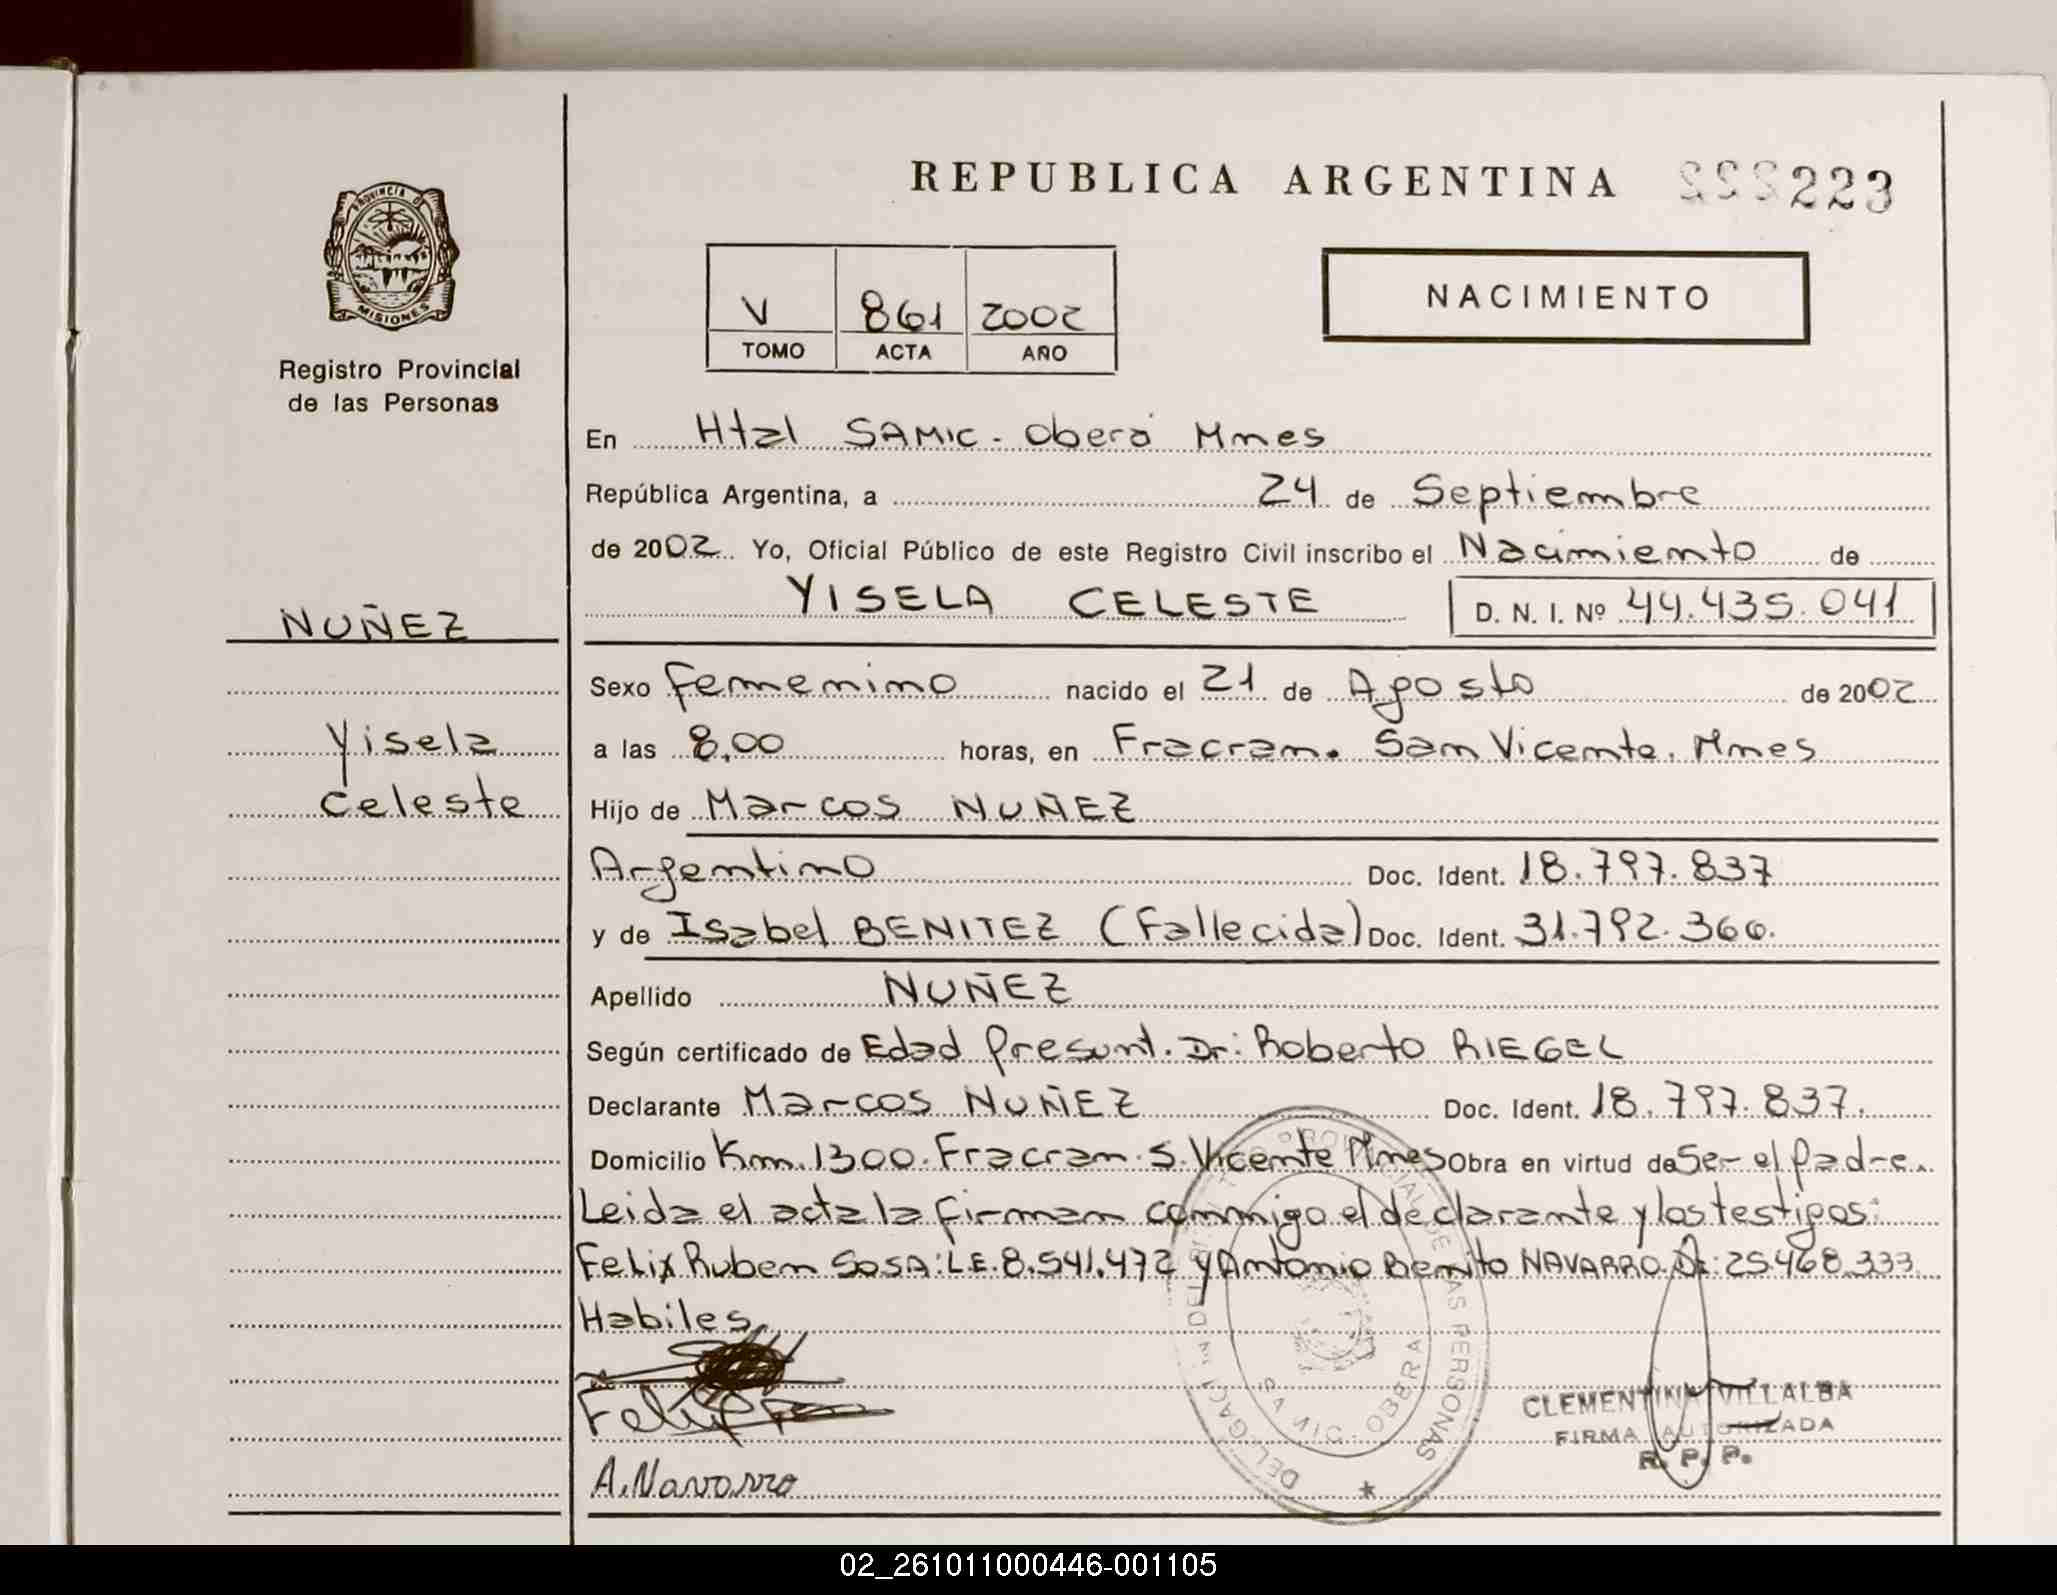 REPUBLICA ARGENTINA 223
PROVINCIA DE
MISIONES
Registro Provincial
de las Personas
V 861 2002
TOMO ACTA AÑO
NACIMIENTO
En Htal SAMIC - Oberá Mnes
República Argentina, a 24 de Septiembre
de 2002 Yo, Oficial Público de este Registro Civil inscribo el Nacimiento de
YISELA CELESTE D. N. I. Nº 44.435.041
NUÑEZ
Sexo femenino nacido el 21 de Agosto de 2002
Yisela
a las 8,00 horas, en Fracran. San Vicente. Mnes
Celeste
Hijo de Marcos NUÑEZ
Argentino Doc. Ident. 18.797.837
y de Isabel BENITEZ (Fallecida) Doc. Ident. 31.792.366.
Apellido NUÑEZ
Según certificado de Edad Presunt. Dr: Roberto RIEGEL
Declarante Marcos NUÑEZ Doc. Ident. 18.797.837.
Domicilio Km. 1300. Fracran. S. Vicente Mnes Obra en virtud de Ser el Padre.
Leida el acta la firman conmigo el declarante y los testigos:
Felix Ruben SOSA: L.E. 8.541.472 y Antonio Benito NAVARRO. D: 25.468.333
Habiles
A. Navarro
CLEMENTINA VILLALBA
FIRMA AUTORIZADA
R. P. P.
02_261011000446-001105